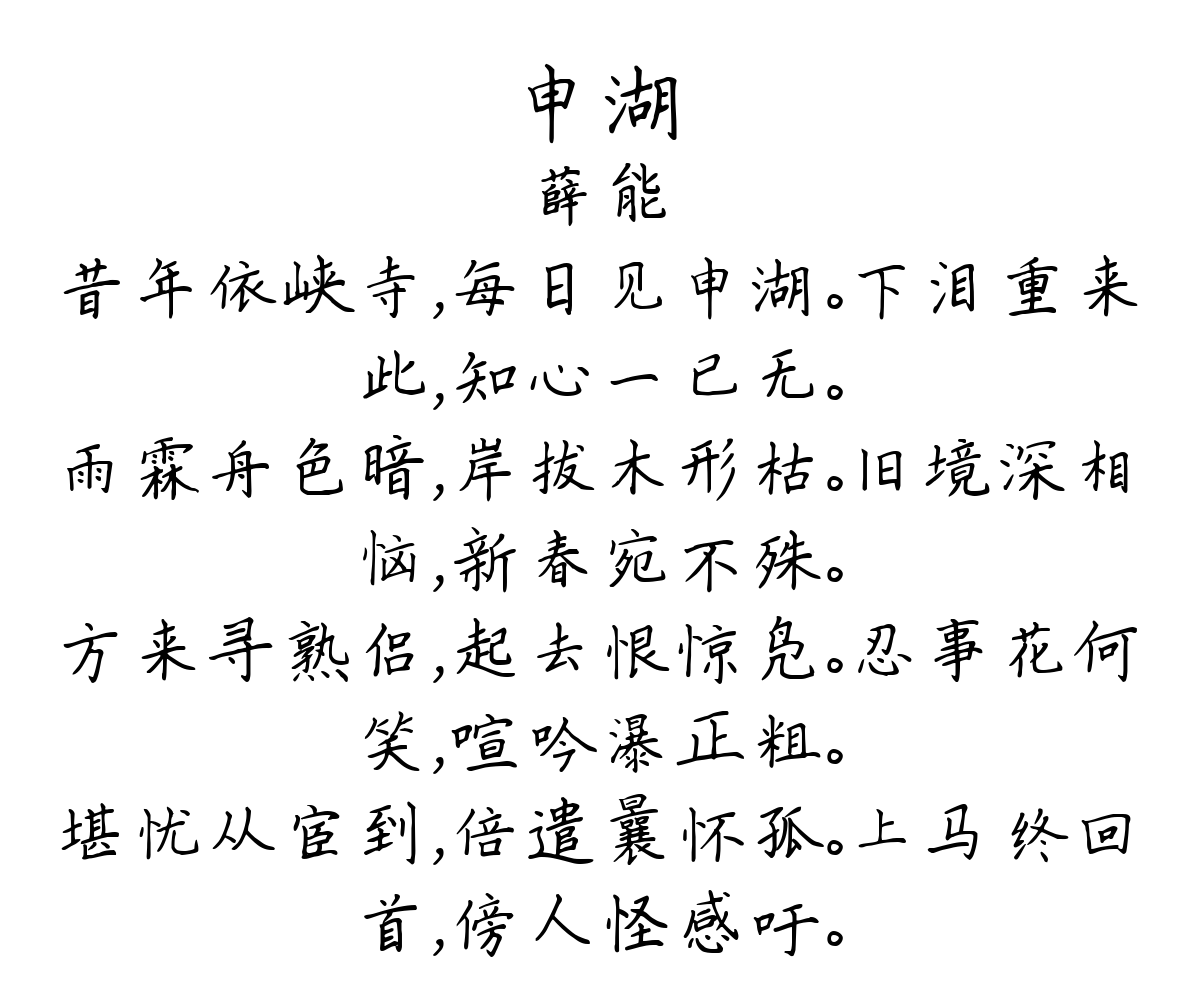 申湖
薛能
昔年依峡寺,每日见申湖。下泪重来
此,知心一已无。
雨霖舟色暗,岸拔木形枯。旧境深相
恼,新春宛不殊。
方来寻熟侣,起去恨惊凫。忍事花何
笑,喧吟瀑正粗。
堪忧从宦到,倍遣曩怀孤。上马终回
首,傍人怪感吁。